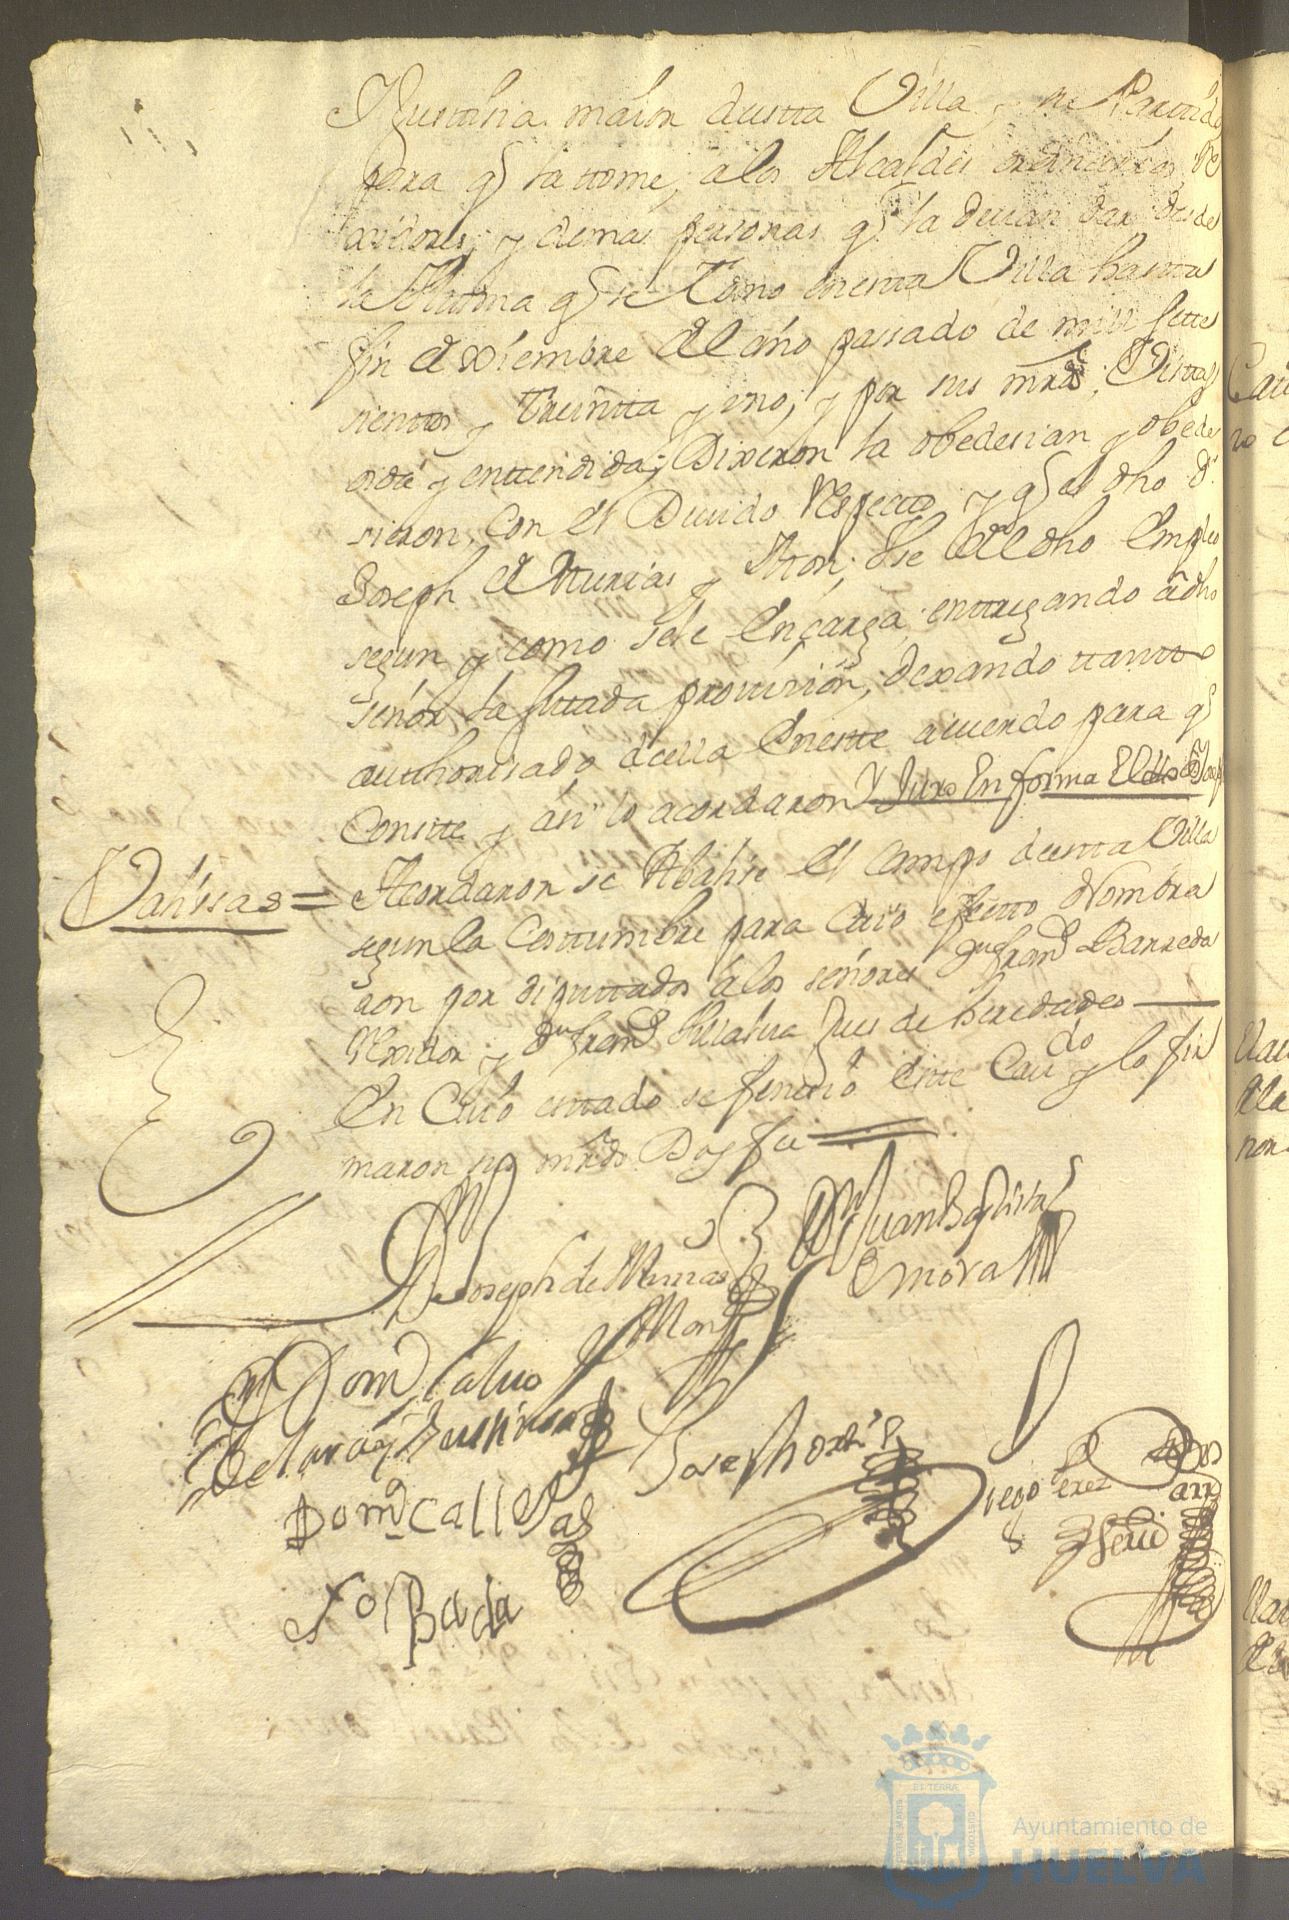 Justisia maior desta Villa y su Partido
para q̃ la tome, a los Alcaldes ordinarios Re
xidores, y demas personas q̃ la deuian dar desde
la Vltima q̃ se Tomo en esta Villa hasta
fin de Diziembre del año passado de mill sette
sientos y treintta y uno; y por sus mrds; Vista
oida y enttendida; Dixeron la obedesian y obede
sieron, con el Deuido Respecto y q̃ el dho Dn
Joseph de Asturias y Mon; Use del dho Empleo
segun y como se le Encarga; enttregando a dho
señor la sittada prouision, dexando ttantto
authorisado della En este acuerdo para q̃
Conste y asi lo acordaron Y Juro En forma El dho Dn Joseph
Vatissas = Acordaron se Vatisse el Campo desta Villa
segun la Costtumbre para Cuio efecto Nombra
ron por diputtados a los señores Dn Franco Barreda
Rexidor y Dn Franco Juez de heredades
En Cuio estado se fenecio este Caudo y lo fir
maron sus mrds Doy fee
Dn Joseph de Asturias
y Mon
Dn Juan Baptista
Mora
Dn Domo Caluo
de Lara y
Joseph ortis
Domo Calle
Diego Perez
Bada
Ayuntamiento de
HUELVA